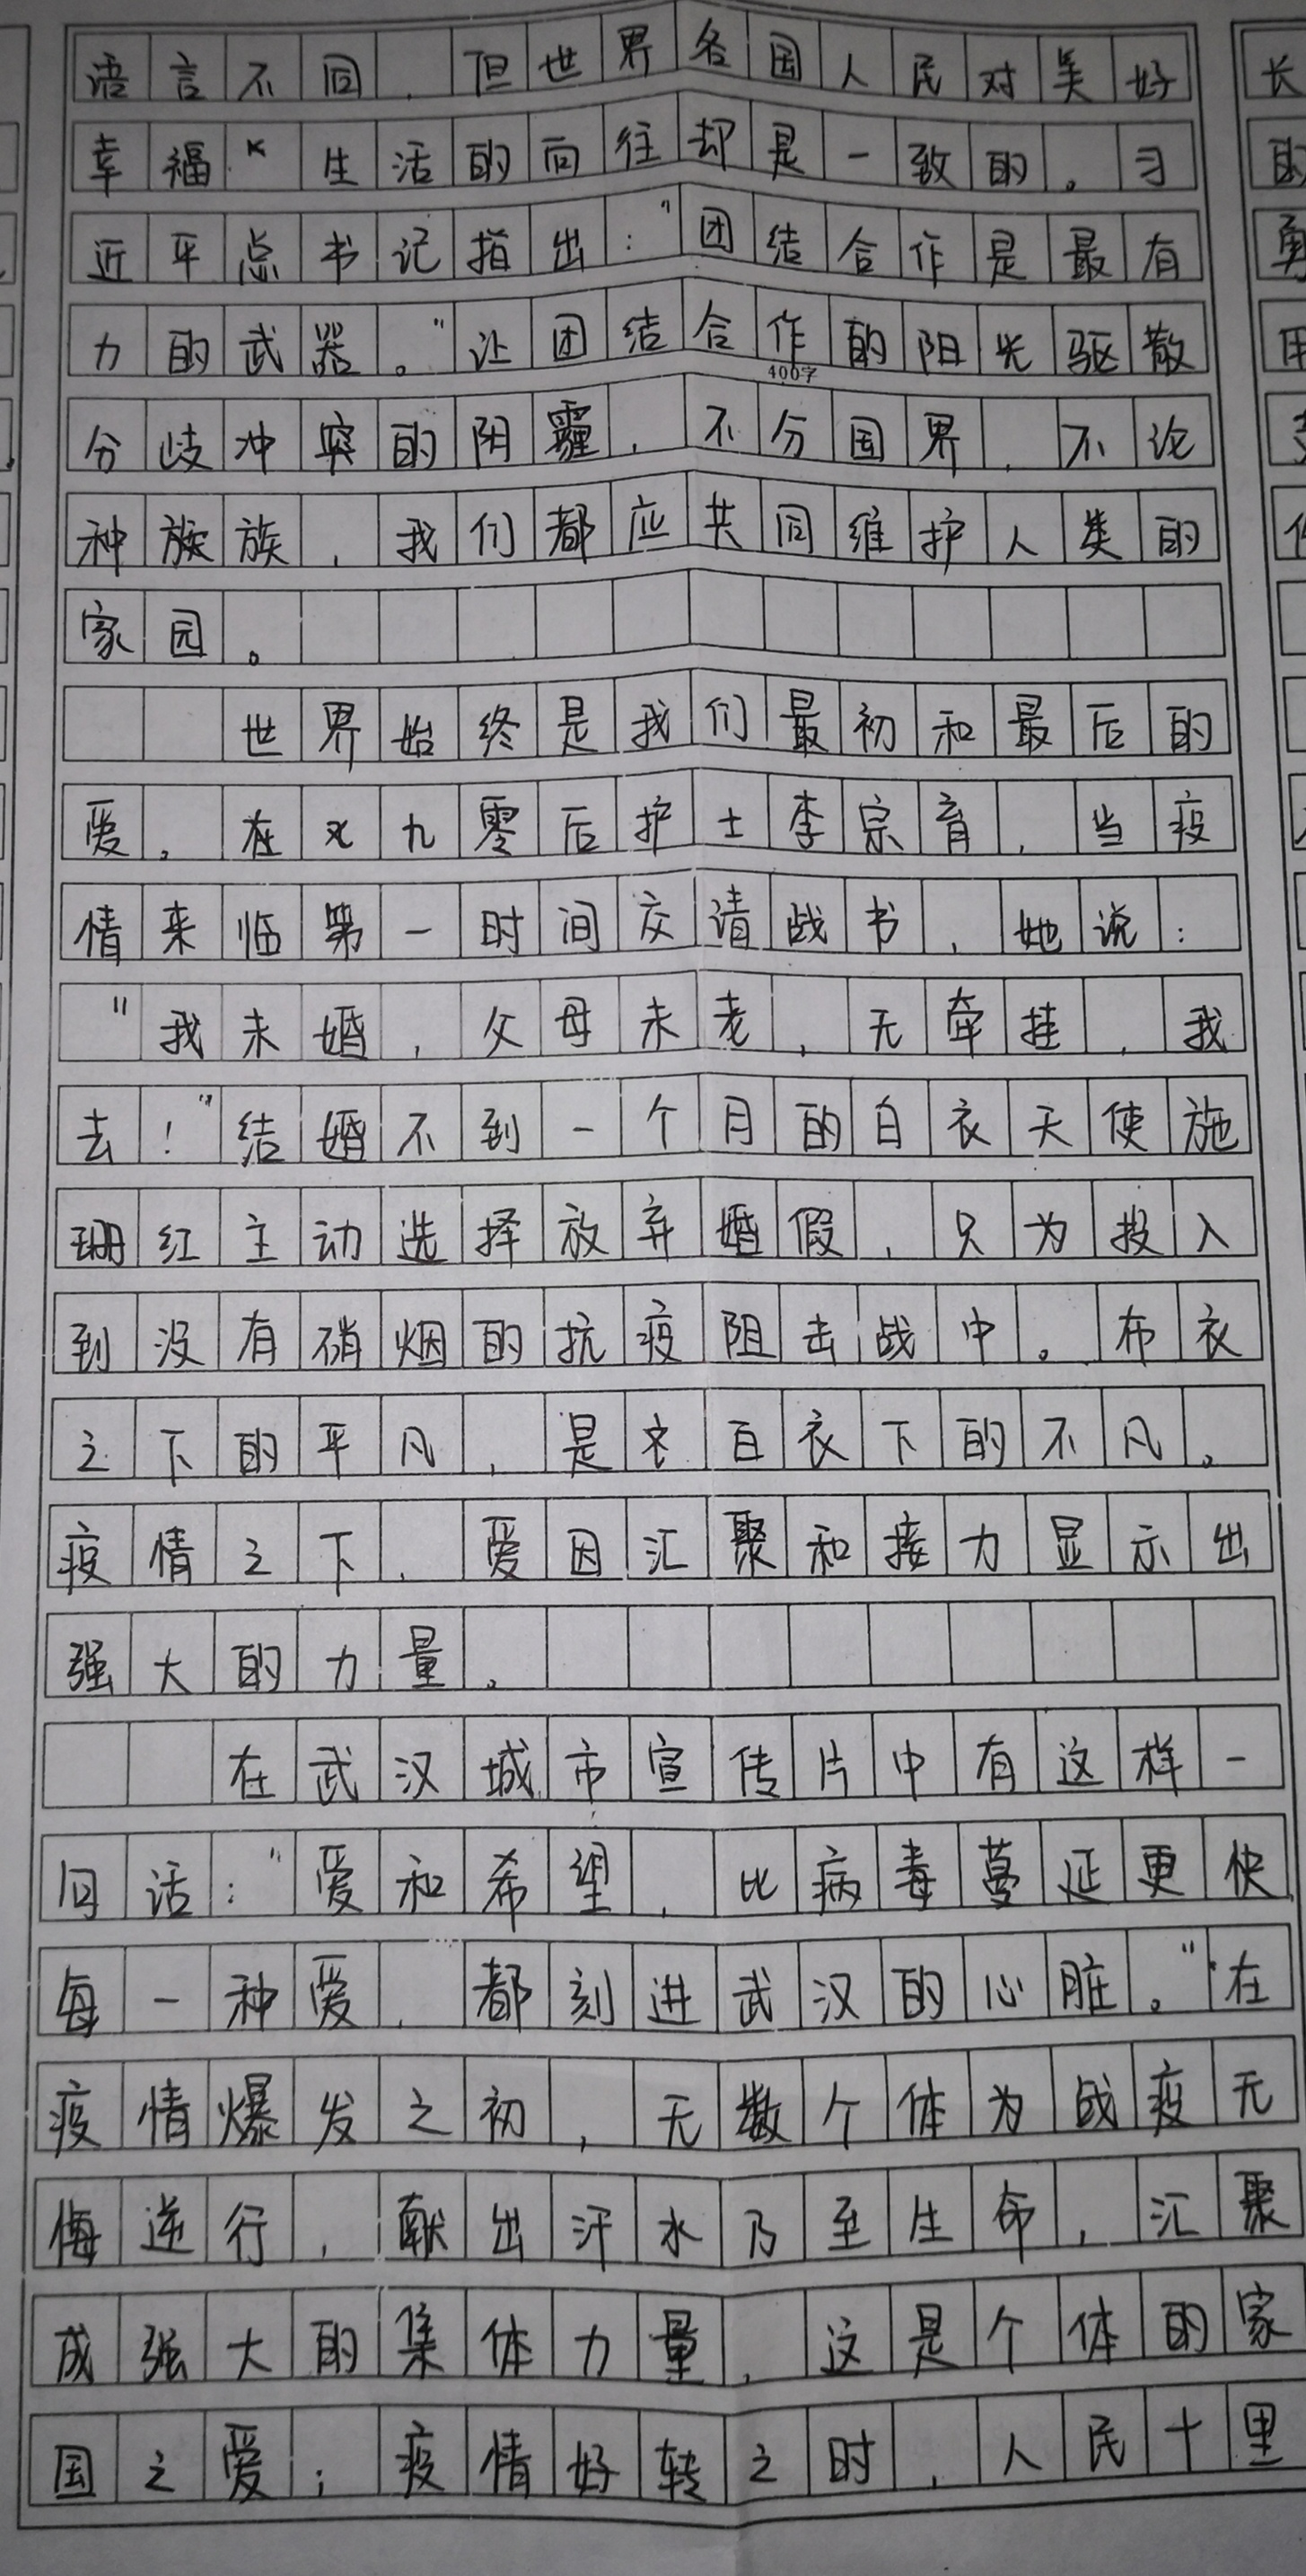 语言不同，但世界各国人民对美好
幸福生活的向往却是一致的。习
近平总书记指出："团结合作是最有
力的武器。"让团结合作的阳光驱散
400字
分歧冲突的阴霾，不分国界，不论
种族族，我们都应共同维护人类的
家园。
世界始终是我们最初和最后的
爱。在九零后护士李宗育，当疫
情来临第一时间交请战书，她说：
"我未婚，父母未老，无牵挂，我
去！"结婚不到一个月的白衣天使施
珊红主动选择放弃婚假，只为投入
到没有硝烟的抗疫阻击战中。布衣
之下的平凡，是白衣下的不凡。
疫情之下，爱因汇聚和接力显示出
强大的力量。
在武汉城市宣传片中有这样一
句话："爱和希望，比病毒蔓延更快
每一种爱，都刻进武汉的心脏。"在
疫情爆发之初，无数个体为战疫无
悔逆行，献出汗水乃至生命，汇聚
成强大的集体力量，这是个体的家
国之爱；疫情好转之时，人民十里